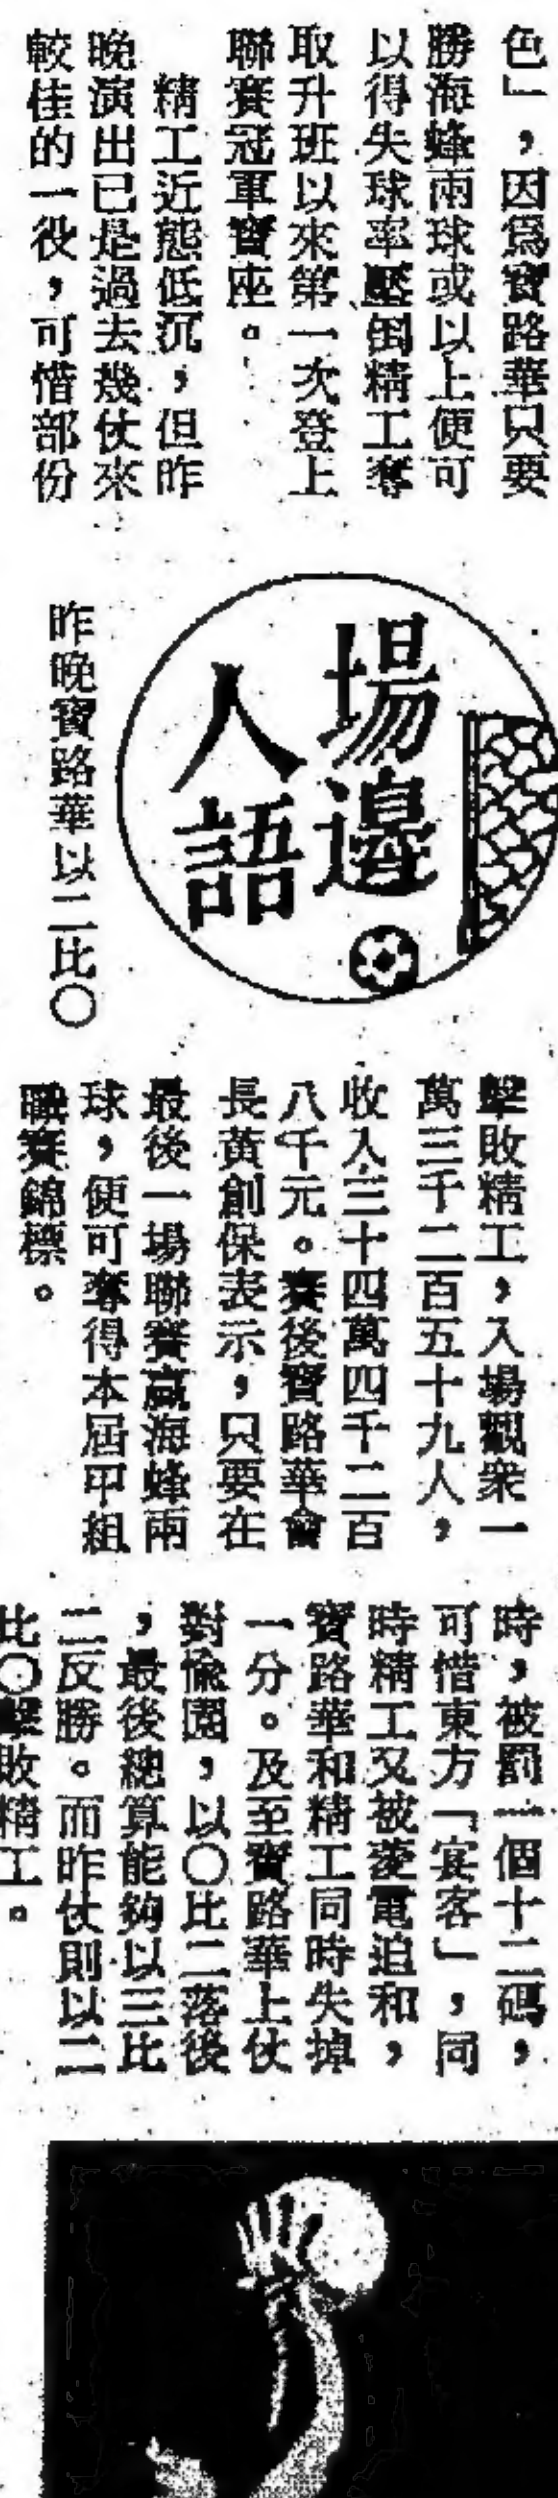 色」，因爲寶路華只要
勝海蜂兩球或以上便可
以得失球率壓倒精工奪
取升班以來第一次登上
聯賽冠軍寶座。
精工近態低沉，但昨
晚演出已是過去幾仗來
較佳的一役，可惜部份
場邊
人語
昨晚寶路華以二比〇
擊敗精工，入場觀衆一
萬三千二百五十九人，
收入三十四萬四千二百
八千元。賽後寶路華會
長黃創保表示，只要在
最後一場聯賽贏海蜂兩
球，便可奪得本屆甲組
聯賽錦標。
時，被罰一個十二碼，
可惜東方「宴客」，同
時精工又被菱電迫和，
寶路華和精工同時失掉
一分。及至寶路華上仗
對愉園，以〇比二落後
，最後總算能夠以三比
二反勝。而昨仗則以二
比〇擊敗精工。